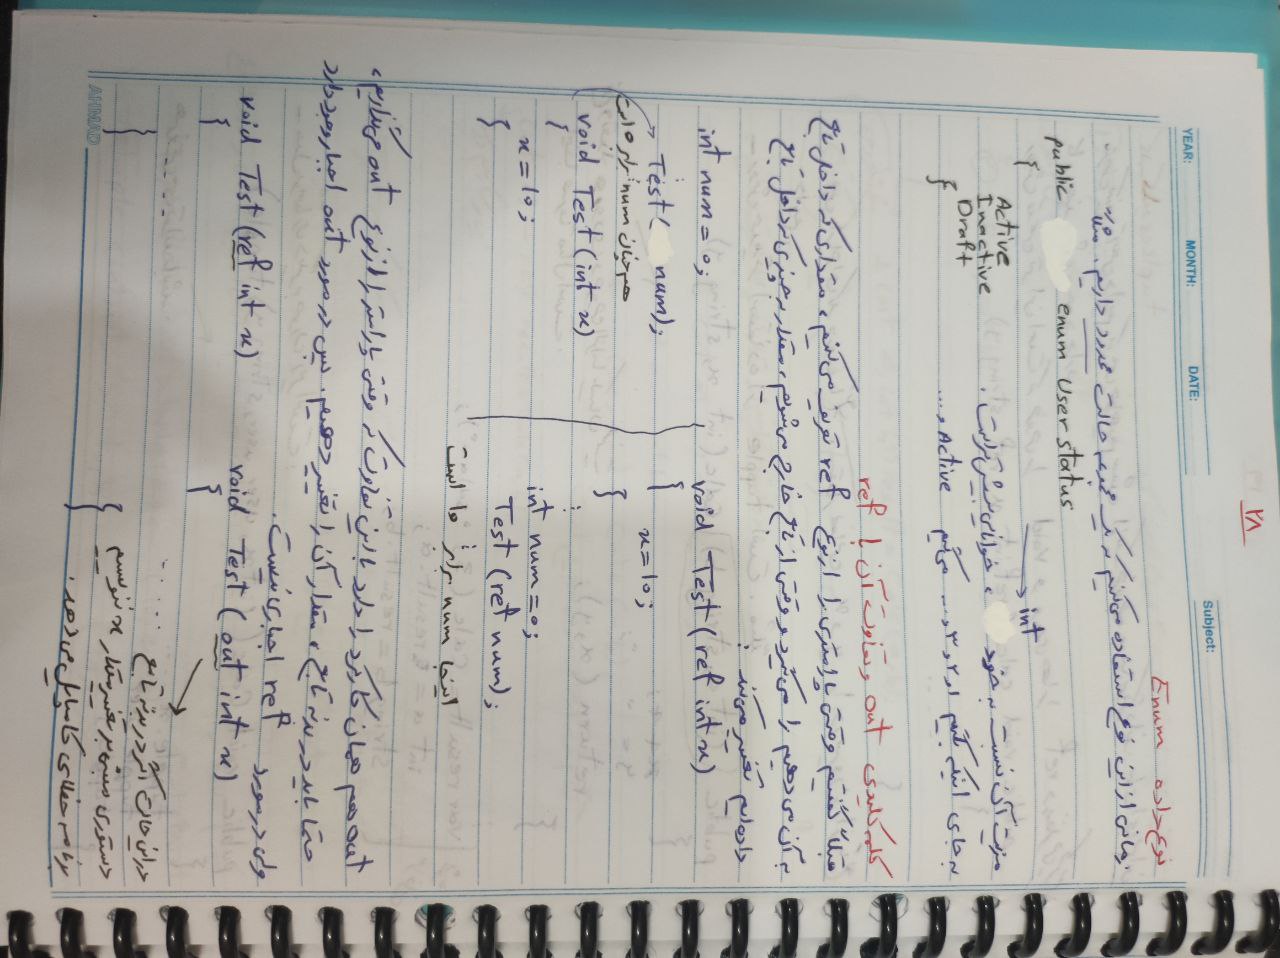 ۲۸
YEAR: MONTH: DATE: Subject:
نوع داده Enum
زمانی از این نوع استفاده می‌کنیم که یک مجموعه حالت محدود داریم. مثلاً
public enum User status
{
Active
Inactive
Draft
}
int
مزیت آن نسبت به خود ، خوانایی بیش‌تر است.
به جای اینکه بگیم ۱و۲و۳و... می‌گیم Active و...
کلمه کلیدی out و تفاوت آن با ref
قبلاً گفتیم وقتی پارامتری را از نوع ref تعریف می‌کنیم، مقداری که داخل تابع
به آن می‌دهیم را می‌گیرد و وقتی از تابع خارج می‌شویم، مقدار به چیزی که داخل تابع
داده‌ایم تغییر می‌کند:
void Test(ref int x)
{
x=10;
}
⋮
int num=0;
Test(ref num);
⋮
اینجا num برابر ۱۰ است
int num=0;
⋮
Test( num);
⋮
هم‌چنان num برابر ۰ است
void Test(int x)
{
x=10;
}
out هم همان کارکرد را دارد با این تفاوت که وقتی پارامتر را از نوع out می‌گذاریم،
حتما باید در بدنه تابع، مقدار آن را تغییر دهیم. پس در مورد out اجبار وجود دارد
ولی در مورد ref اجباری نیست.
void Test(out int x)
{
......
}
در این حالت اگر در بدنه تابع
دستوری مبنی بر تغییر مقدار x ننویسیم
برنامه خطای کامپایل می‌دهد.
void Test(ref int x)
{
......
}
AHMAD